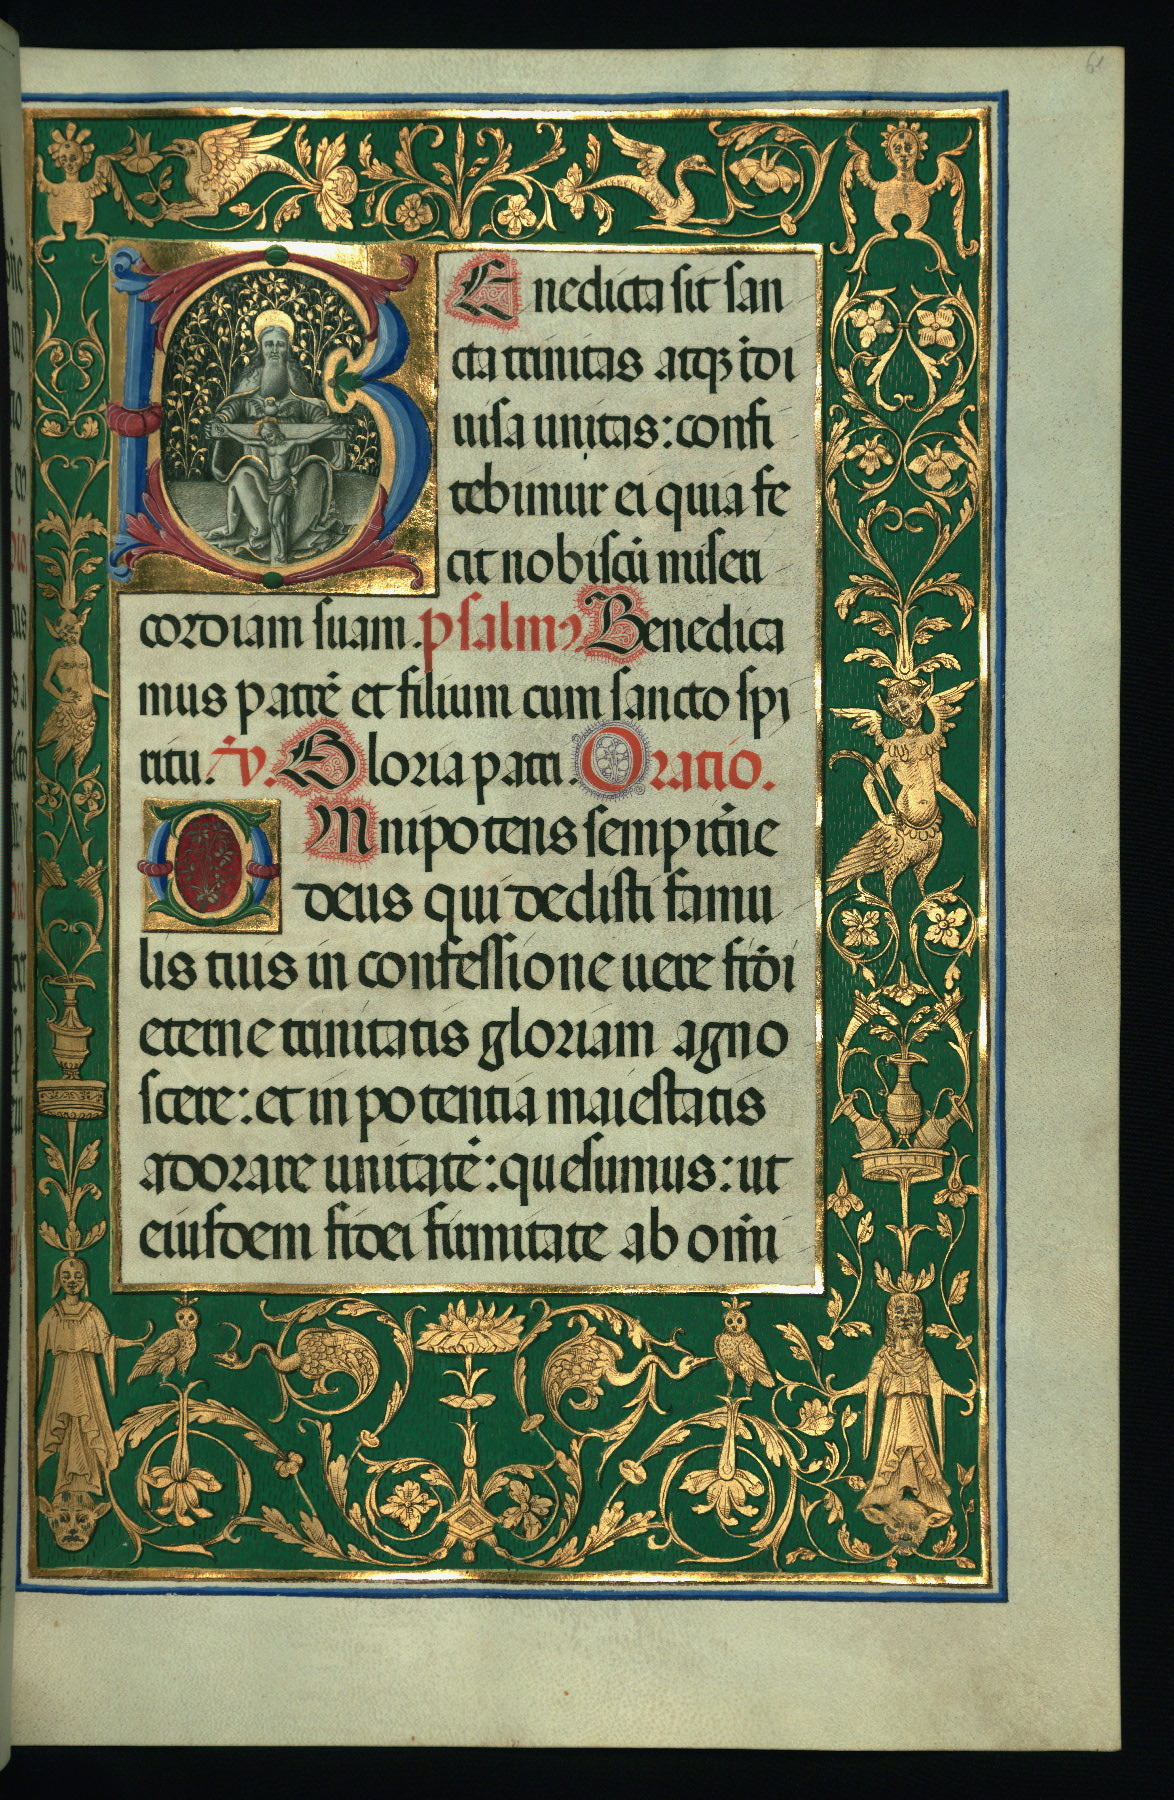 61
BEnedicta sit san
cta trinitas atqꝫ īdi
uisa unitas: confi
tebimur ei quia fe
cit nobiscū miseri
cordiam suam. psalmꝰ. Benedica
mus patrē et filium cum sancto spi
ritu. ℣. Gloria patri. Oratio.
OMnipotens sempit̄ne
deus qui dedisti famu
lis tuis in confessione uere fidi
eterne trinitatis gloriam agno
scere: et in potentia maiestatis
adorare unitatē: quesumus: ut
eiusdem fidei firmitate ab om̄i